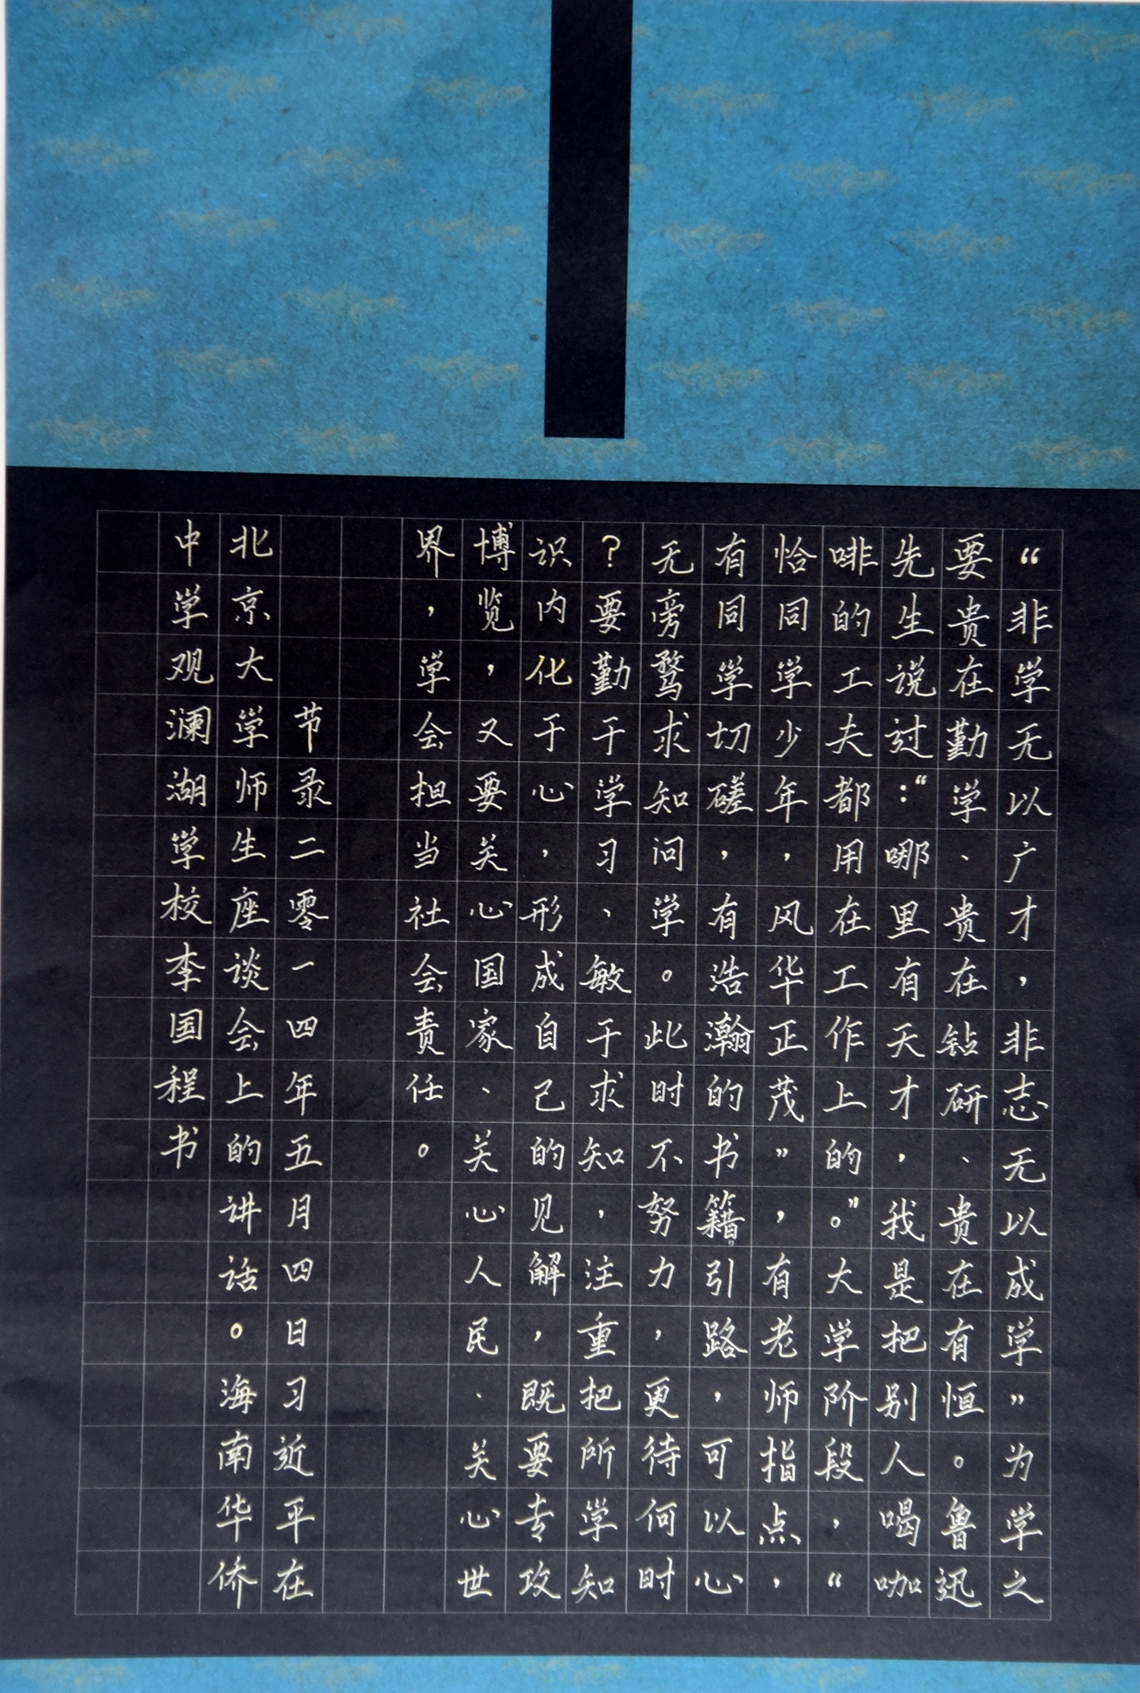 “非学无以广才，非志无以成学”为学之
要贵在勤学、贵在钻研、贵在有恒。鲁迅
先生说过：“哪里有天才，我是把别人喝咖
啡的工夫都用在工作上的。”大学阶段，“
恰同学少年，风华正茂”，有老师指点，
有同学切磋，有浩瀚的书籍引路，可以心
无旁骛求知问学。此时不努力，更待何时
？要勤于学习、敏于求知，注重把所学知
识内化于心，形成自己的见解，既要专攻
博览，又要关心国家、关心人民、关心世
界，学会担当社会责任。
节录二零一四年五月四日习近平在
北京大学师生座谈会上的讲话。海南华侨
中学观澜湖学校李国程书